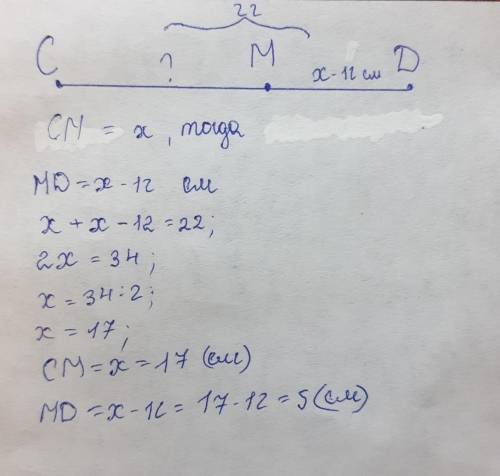 22
C ? M x-12 см D
CM = x, тогда
MD = x - 12 см
x + x - 12 = 22;
2x = 34;
x = 34:2;
x = 17;
CM = x = 17 (см)
MD = x - 12 = 17 - 12 = 5 (см)